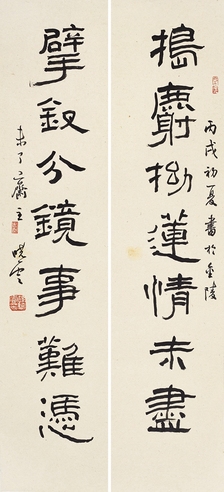 丙戌初夏書於金陵
搗麝拗蓮情未盡
擘釵分鏡事難憑
未了齋主曉雲